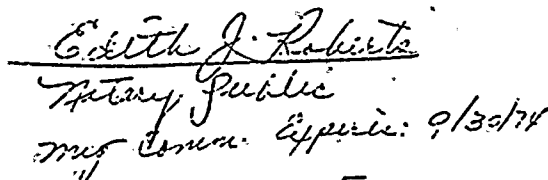 Edith J. Roberts
Notary Public
My Comm. Expires: 9/30/74